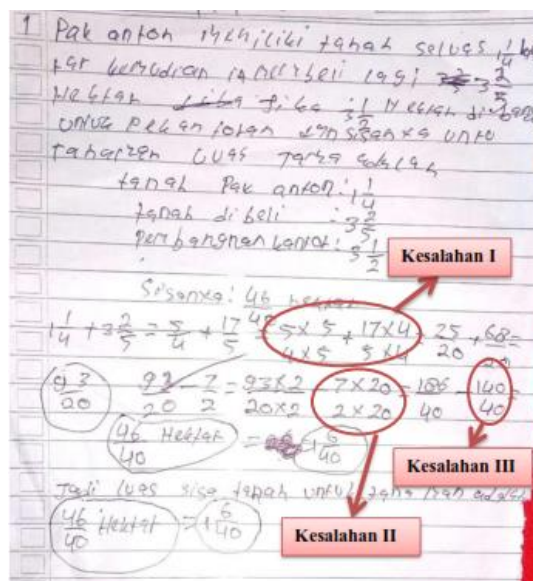 1 Pak anton memiliki tanah seluas 1 1/4 hek
tar kemudian ia membeli lagi 3 2/5
Hektar Jika 3 1/2 Hektar di bang
untuk sisanxa unto
luas adalah
tanah Pak anton: 1 1/4
tanah di beli : 3 2/5
: 3 1/2
Kesalahan I
Sisanxa: 46/40 hektar
1 1/4 + 3 2/5 = 5/4 + 17/5 = 5 x 5 / 4 x 5 + 17 x 4 / 5 x 4 = 25/20 + 68/20
93/20 93/20 - 7/2 = 93 x 2 / 20 x 2 - 7 x 20 / 2 x 20 = 186/40 - 140/40
46/40 Hektar = 1 6/40
Kesalahan III
Jadi luas sisa tanah untuk adalah
46/40 Hektar = 1 6/40
Kesalahan II